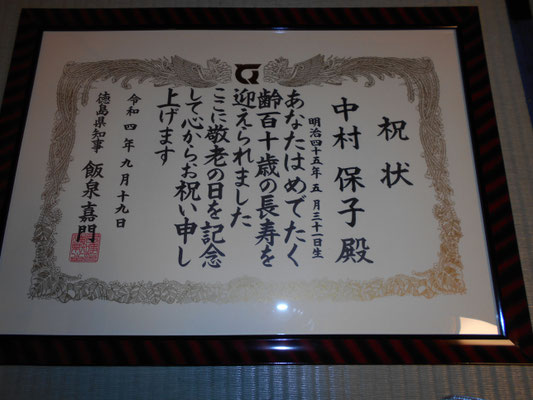 祝状
中村保子殿
明治四十五年五月三十一日生
あなたはめでたく
齢百十歳の長寿を
迎えられました
ここに敬老の日を記念
して心からお祝い申し
上げます
令和四年九月十九日
徳島県知事 飯泉嘉門